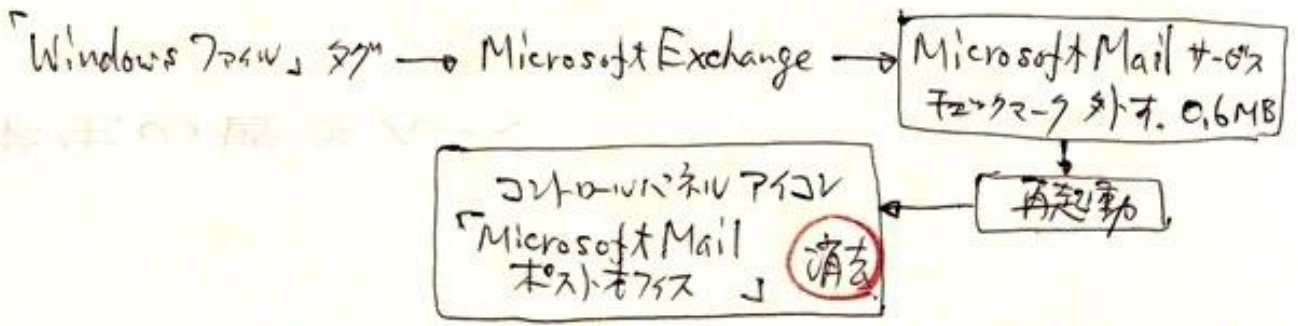 「Windows ファイル」タグ → Microsoft Exchange → Microsoft Mail サービス
チェックマーク外す. 0.6MB
再起動
コントロールパネル アイコン
「Microsoft Mail
ポストオフィス 」 消去